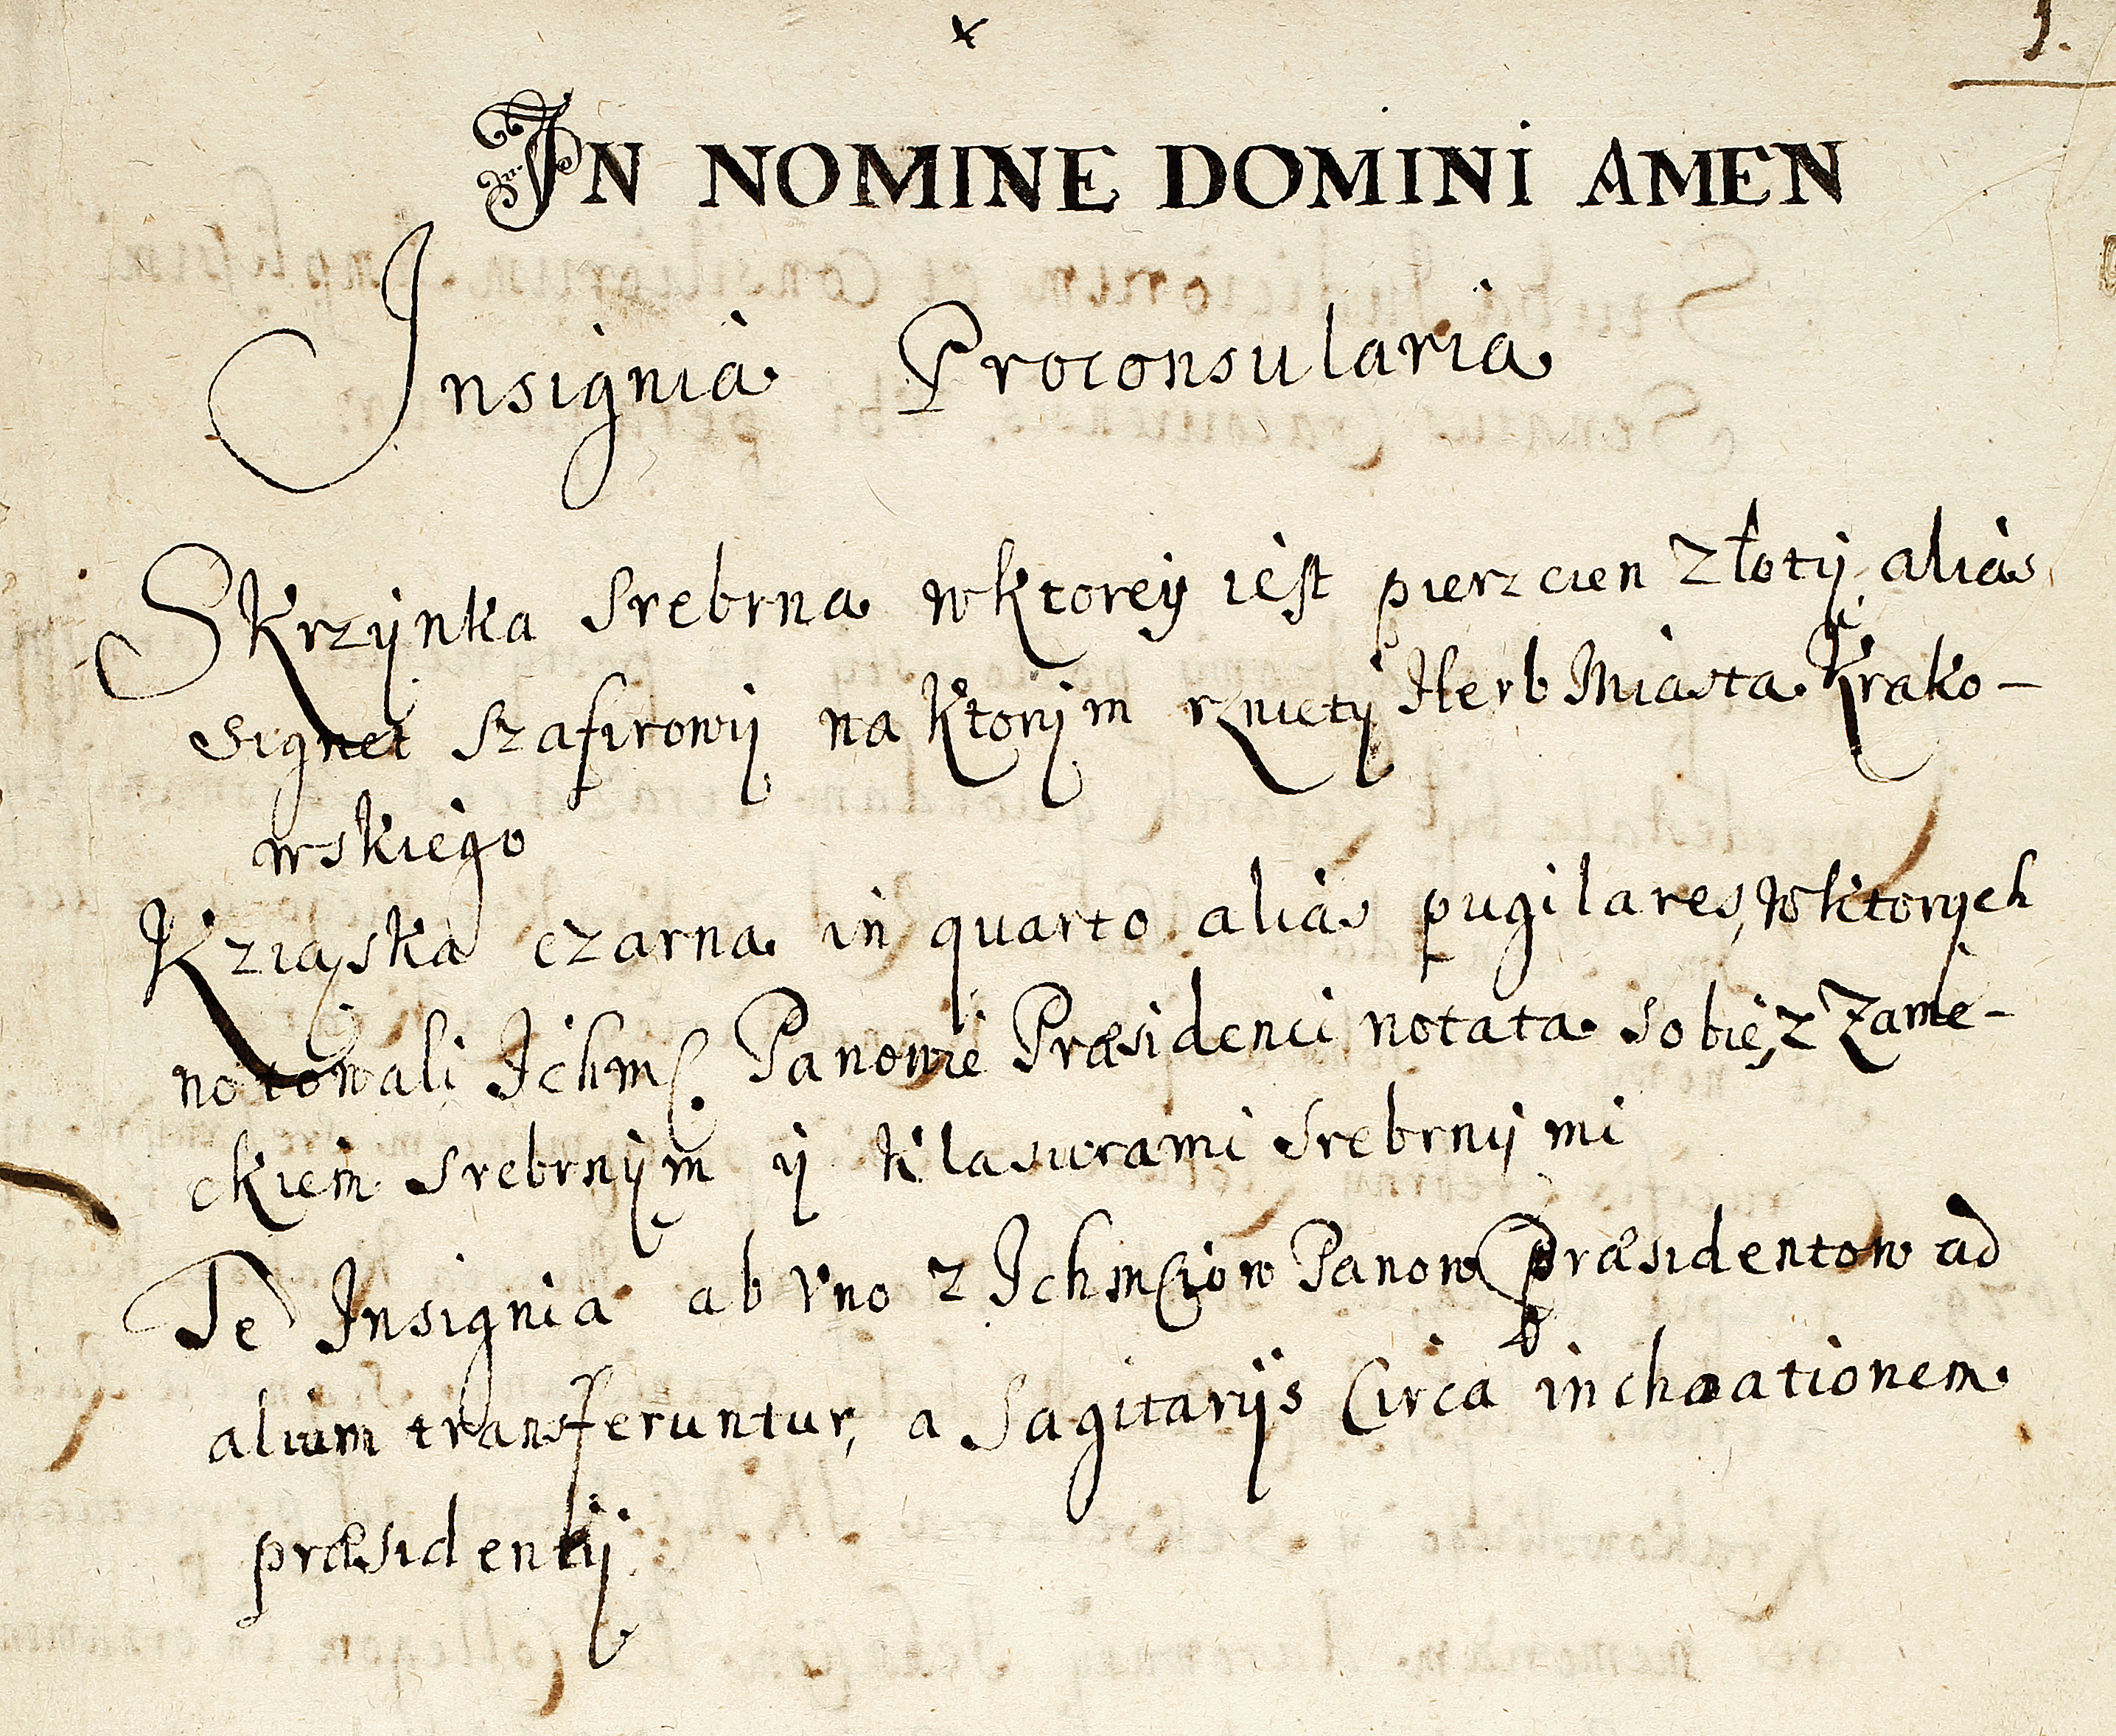 1.
IN NOMINE DOMINI AMEN
Insignia Proconsularia
Skrzÿnka srebrna wktoreÿ iest pierzcien złotÿ alias
signet szafirowÿ na ktorÿm rznietÿ Herb Miasta Krako-
wskiego
Kziąska czarna in quarto alias pugilares, wktorÿch
notowali Ichmć Panowie Præsidenci notata sobie, z Zame-
ckiem srebrnÿm ÿ klasurami srebrnÿmi
Te Insignia ab vno z Ichmciow Panow Præsidentow ad
alium transferuntur, a Sagitarÿs Circa inchoationem
præsidentÿ